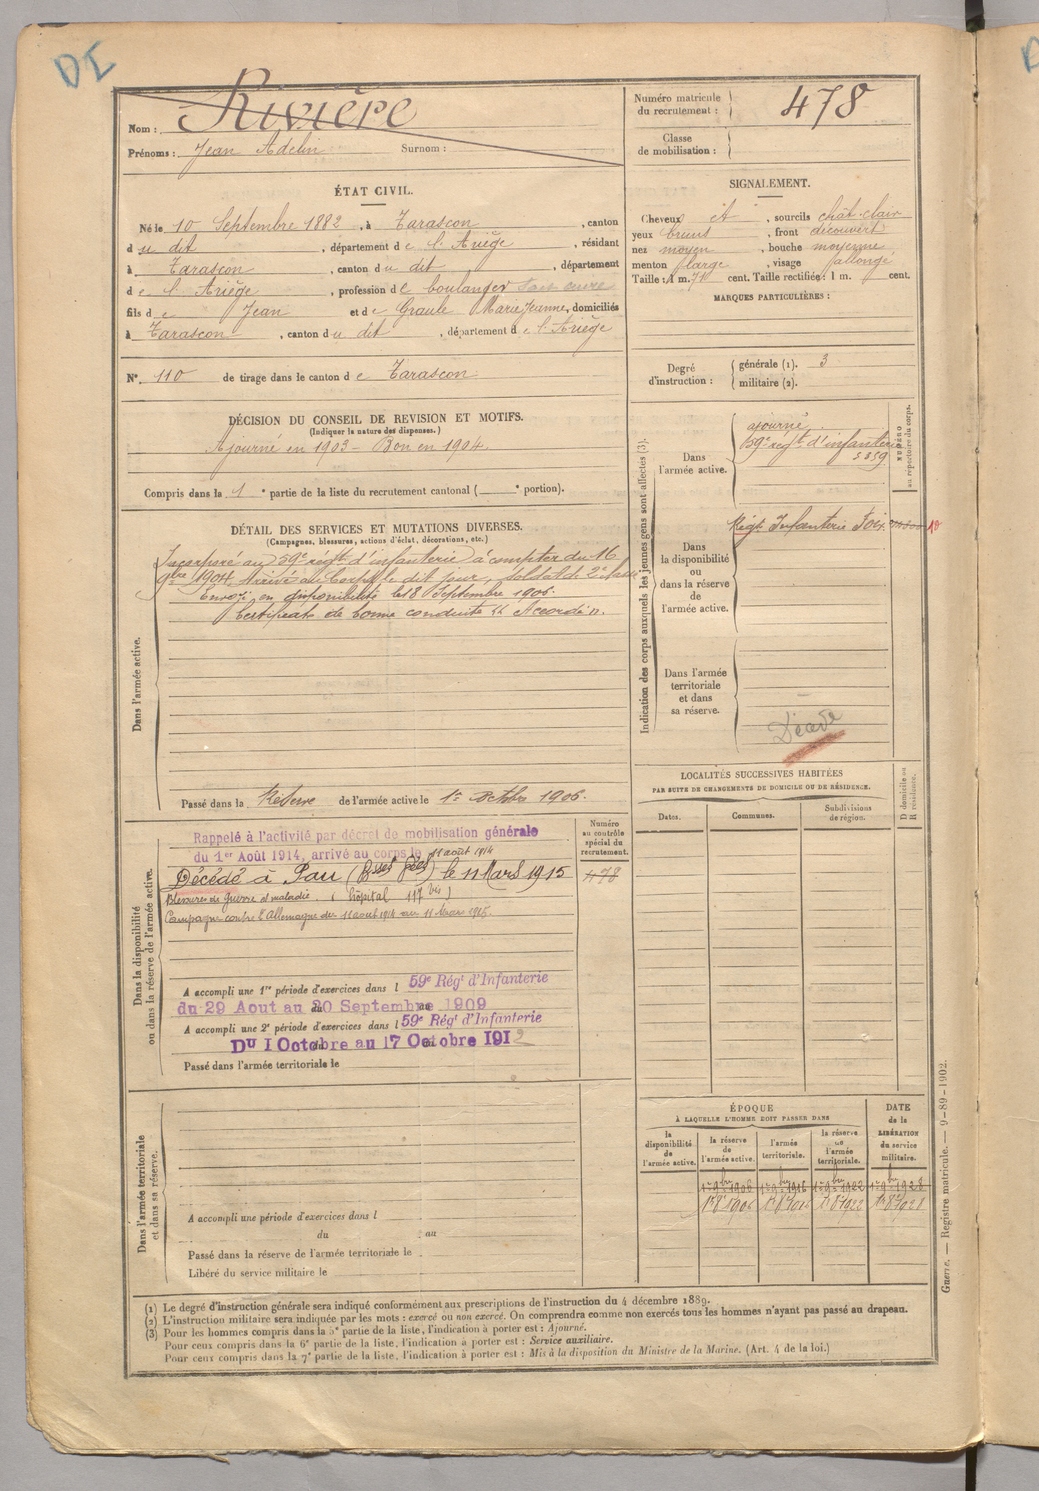 DI
Nom : Rivière
Prénoms : Jean Adelin Surnom :
Numéro matricule du recrutement : 478
Classe de mobilisation :
ÉTAT CIVIL.
Né le 10 Septembre 1882, à Tarascon, canton
du dit, département de l'Ariège, résidant
à Tarascon, canton du dit, département
de l'Ariège, profession de boulanger sait cuire
fils de Jean et de Graule Marie Jeanne, domiciliés
à Tarascon, canton du dit, département de l'Ariège
N° 110 de tirage dans le canton de Tarascon
SIGNALEMENT.
Cheveux et, sourcils chât-clair
yeux bruns, front découvert
nez moyen, bouche moyenne
menton large, visage allongé
Taille : 1 m. 71 cent. Taille rectifiée : 1 m. cent.
MARQUES PARTICULIÈRES :
Degré d'instruction : générale (1). 3
militaire (2).
DÉCISION DU CONSEIL DE REVISION ET MOTIFS.
(Indiquer la nature des dispenses.)
Ajourné en 1903 - Bon en 1904
Compris dans la 1e partie de la liste du recrutement cantonal ( e portion).
DÉTAIL DES SERVICES ET MUTATIONS DIVERSES.
(Campagnes, blessures, actions d'éclat, décorations, etc.)
Dans l'armée active.
Incorporé au 59e régt d'infanterie à compter du 16
9bre 1904. Arrivé au Corps le dit jour, soldat de 2e classe
Envoyé en disponibilité le 18 Septembre 1906.
Certificat de bonne conduite "Accordé".
Passé dans la Réserve de l'armée active le 1er Octobre 1906.
Indication des corps auxquels les jeunes gens sont affectés (3).
NUMÉRO au répertoire du corps.
Dans l'armée active.
ajourné
59e régt d'infanterie
5859
Dans la disponibilité ou dans la réserve de l'armée active.
Régt Infanterie Foix
Dans l'armée territoriale et dans sa réserve.
Décédé
LOCALITÉS SUCCESSIVES HABITÉES
PAR SUITE DE CHANGEMENTS DE DOMICILE OU DE RÉSIDENCE.
D domicile ou R résidence.
Dates. Communes. Subdivisions de région.
Numéro au contrôle spécial du recrutement.
478
Dans la disponibilité ou dans la réserve de l'armée active.
Rappelé à l'activité par décret de mobilisation générale
du 1er Août 1914, arrivé au corps le 11 août 1914
Décédé à Pau (Bsses Pées) le 11 Mars 1915
Blessures de Guerre et maladie. (hôpital 117 bis)
Campagne contre l'Allemagne du 11 août 1914 au 11 Mars 1915.
A accompli une 1re période d'exercices dans l 59e Régt d'Infanterie
du 29 Aout au 20 Septembre 1909
A accompli une 2e période d'exercices dans l 59e Régt d'Infanterie
Du 1 Octobre au 17 Octobre 1912
Passé dans l'armée territoriale le
Dans l'armée territoriale et dans sa réserve.
A accompli une période d'exercices dans l
du au
Passé dans la réserve de l'armée territoriale le
Libéré du service militaire le
ÉPOQUE
À LAQUELLE L'HOMME DOIT PASSER DANS
DATE de la LIBÉRATION du service militaire.
la disponibilité de l'armée active. la réserve de l'armée active. l'armée territoriale. la réserve de l'armée territoriale.
1er 9bre 1906 1er 9bre 1916 1er 9bre 1922 1er 9bre 1928
1er 8bre 1906 1er 8bre 1916 1er 8bre 1922 1er 8bre 1928
(1) Le degré d'instruction générale sera indiqué conformément aux prescriptions de l'instruction du 4 décembre 1889.
(2) L'instruction militaire sera indiquée par les mots : exercé ou non exercé. On comprendra comme non exercés tous les hommes n'ayant pas passé au drapeau.
(3) Pour les hommes compris dans la 5e partie de la liste, l'indication à porter est : Ajourné.
Pour ceux compris dans la 6e partie de la liste, l'indication à porter est : Service auxiliaire.
Pour ceux compris dans la 7e partie de la liste, l'indication à porter est : Mis à la disposition du Ministre de la Marine. (Art. 4 de la loi.)
Guerre. — Registre matricule. — 9-89-1902.